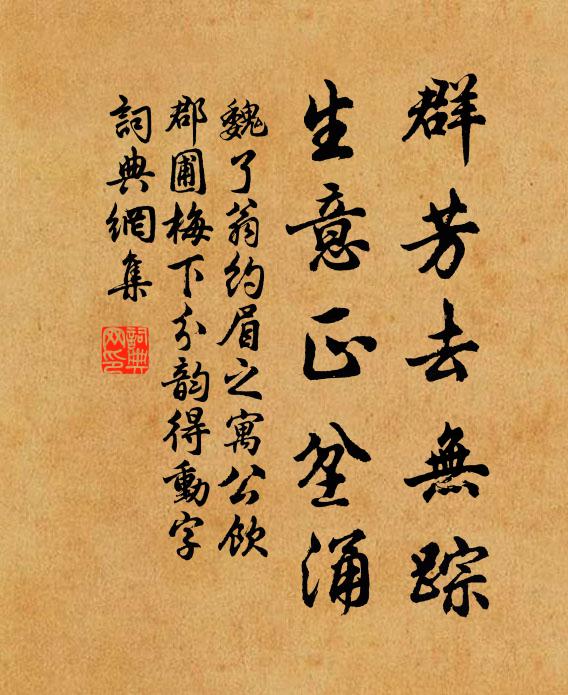 群芳去無踪
生意正坌涌
魏了翁約眉之寓公飲
郡圃梅下分韵得動字
詞典網集
詞典網印